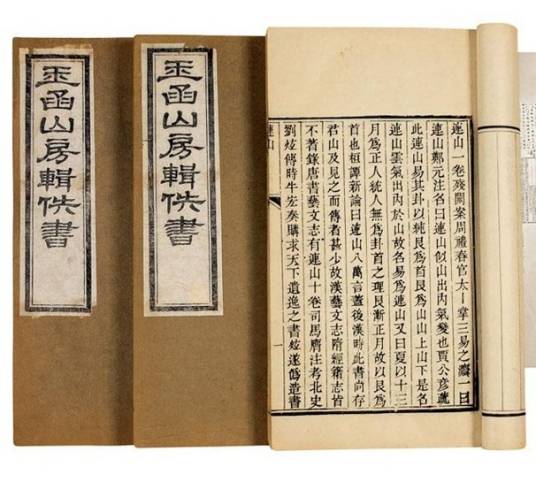 玉函山房輯佚書
玉函山房輯佚書
連山一卷殘闕案周禮春官太卜掌三易之灋一曰
連山鄭元注名曰連山似山出內氣變也賈公彥疏
此連山易其卦以純艮爲首艮爲山山上山下是名
連山雲氣出內於山故名易爲連山又曰夏以十三
月爲正人統人無爲卦首之理艮漸正月故以艮爲
首也桓譚新論曰連山八萬言蓋後漢時此書尚存
君山及見之而傳者甚少故漢藝文志隋經籍志皆
不著錄唐書藝文志有連山十卷司馬膺注考北史
劉炫傳時牛宏奏購求天下遺逸之書炫遂僞造書
連山 一